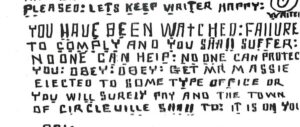 PLEASED: LETS KEEP WRITER HAPPY:
YOU HAVE BEEN WATCHED: FAILURE
TO COMPLY AND YOU SHAll SUFFER:
NO ONE CAN HElP: NO ONE CAN PROTEC
YOU: OBEY: OBEY: GET MR MASSIE
ELECTED TO SOME TYPE OFFICE OR
YOU WILL SURELY PAY AND THE TOWN
OF CIRCLEVILLE SHAll TO: IT IS ON YO